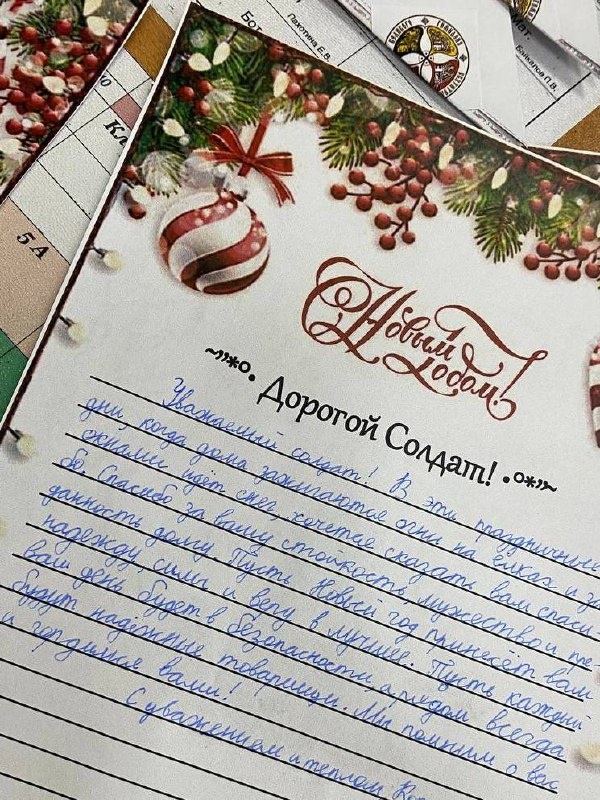 Бот
Пахотина Е.В.
Кл
5 А
Новым
Годом!
Дорогой Солдат!
Уважаемый солдат! В эти праздничные
дни, когда дома зажигаются огни на ёлках и за
окнами идёт снег, хочется сказать вам спаси
бо. Спасибо за вашу стойкость, мужество и пре-
данность долгу. Пусть Новый год принесёт вам
надежду, силы и веру в лучшее. Пусть каждый
ваш день будет в безопасности, а рядом всегда
будут надёжные товарищи. Мы помним о вас
и гордимся вами!
С уважением и теплом